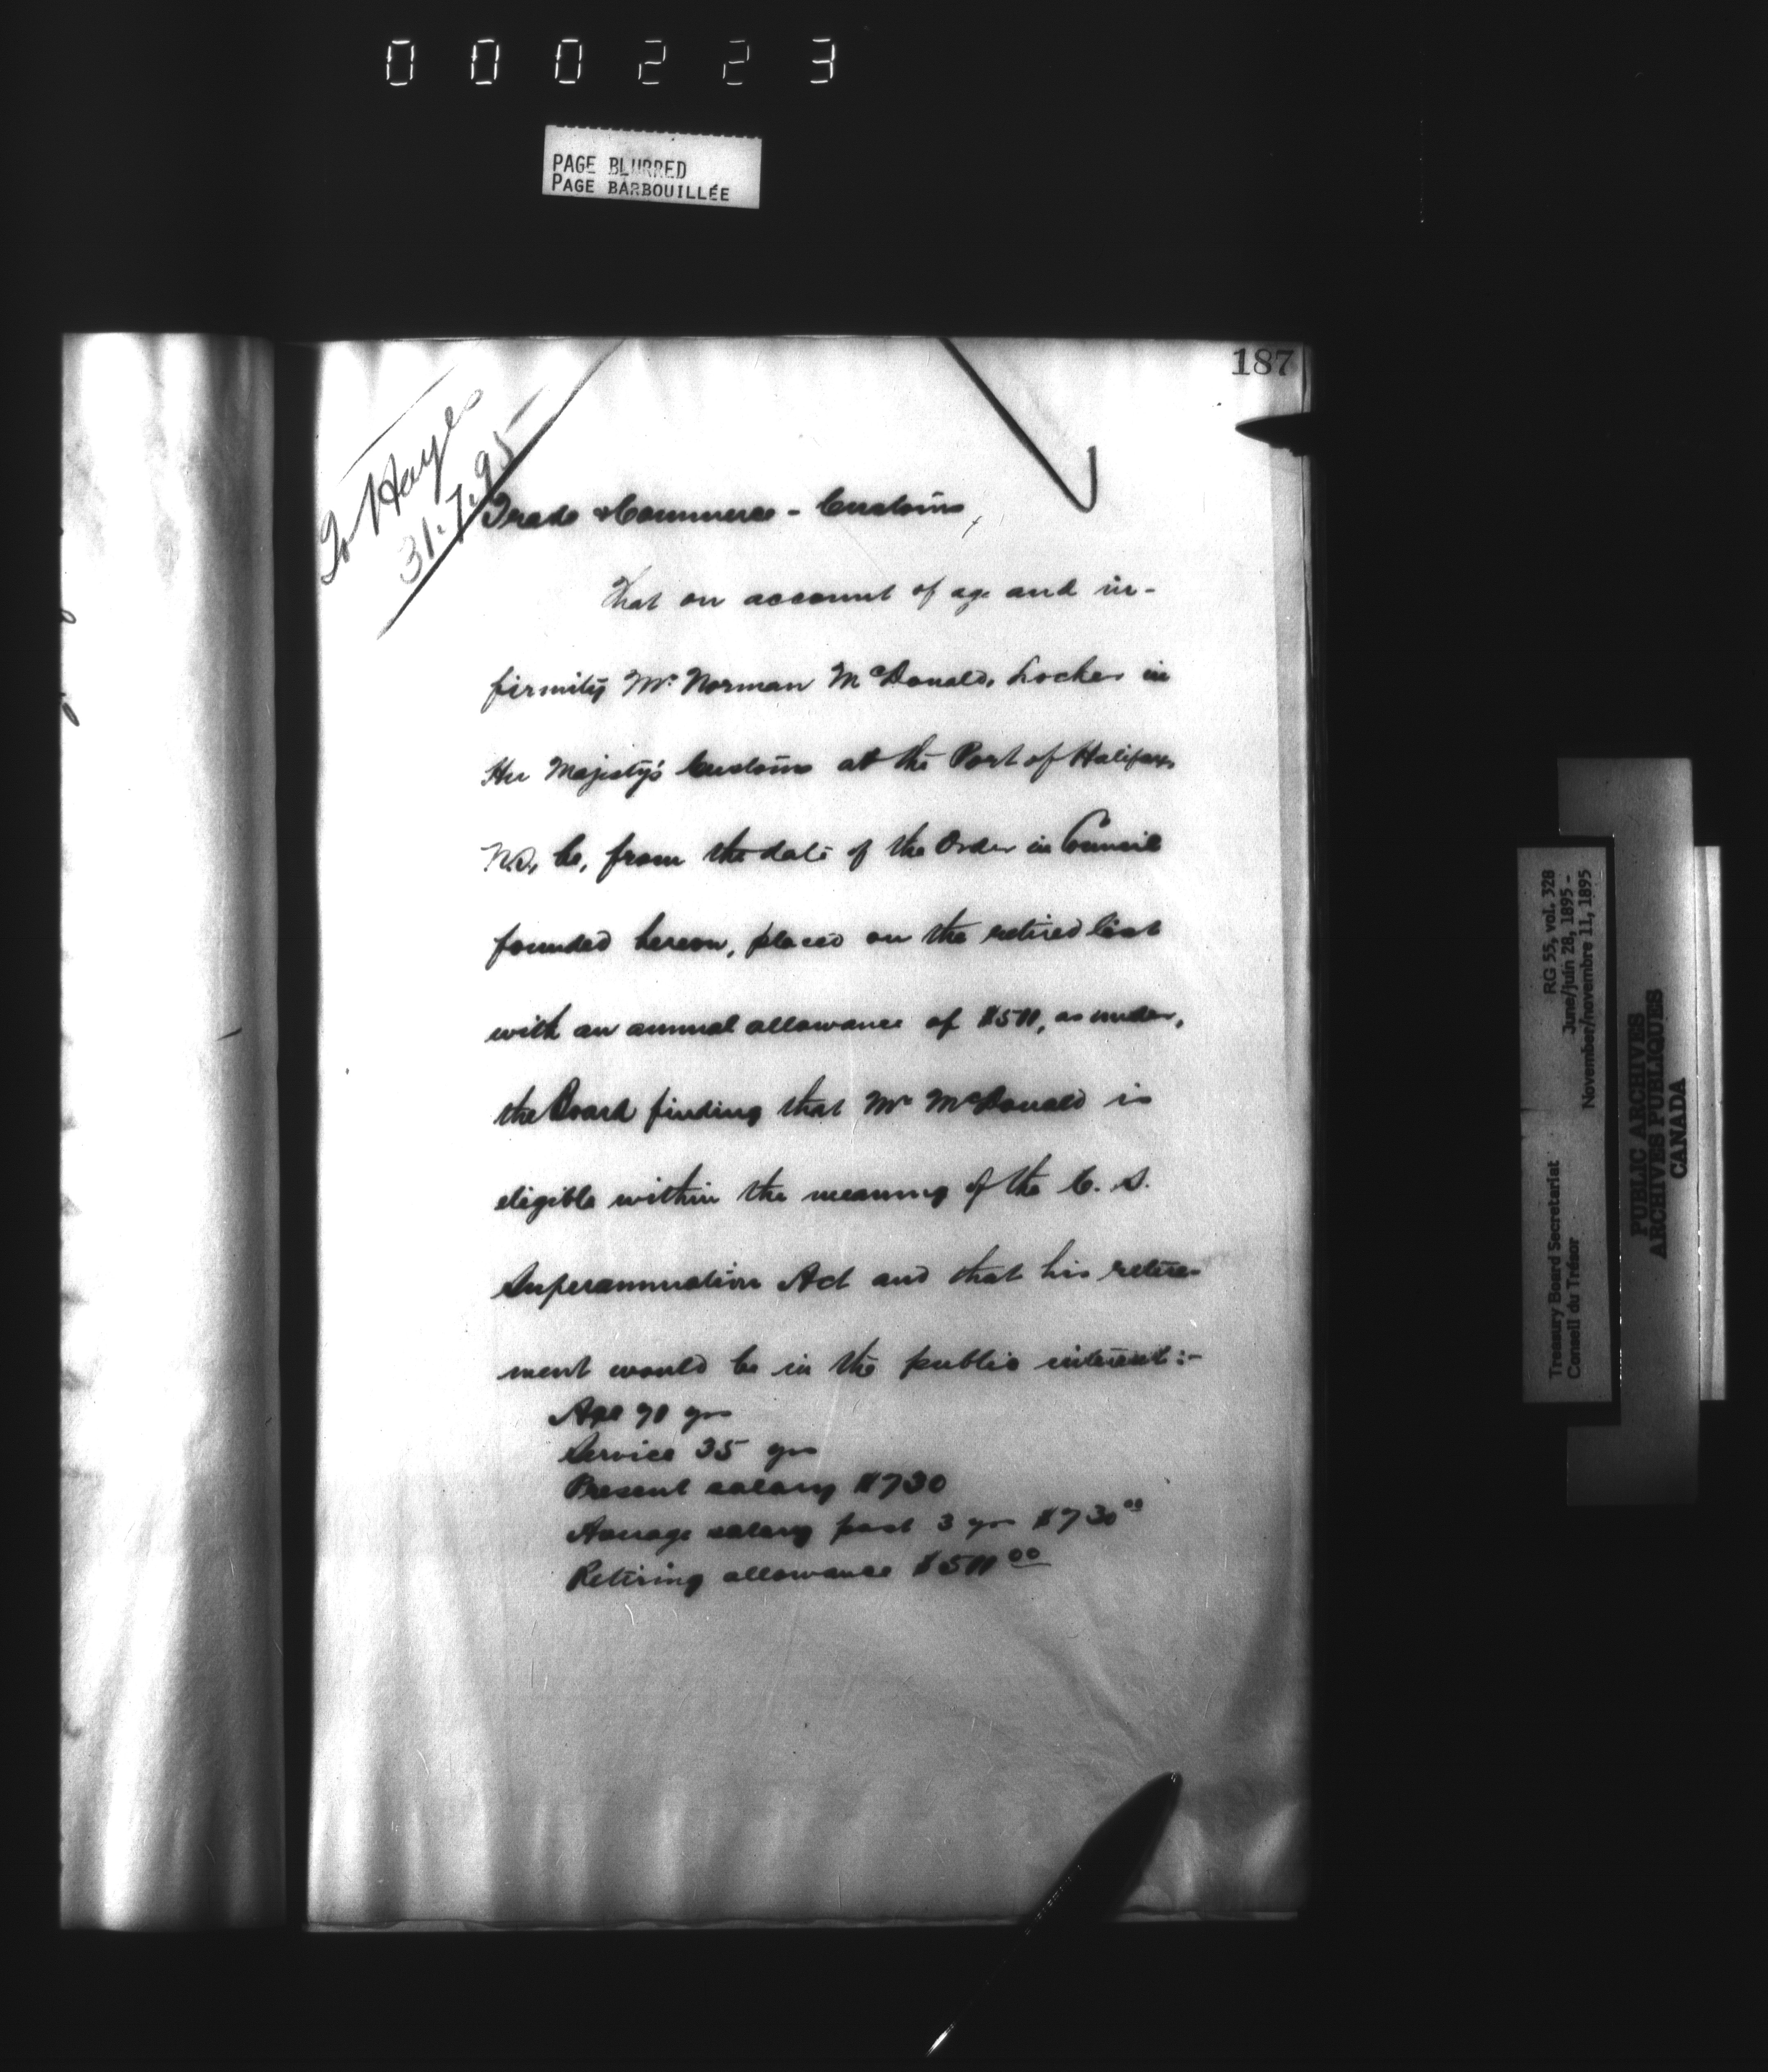 000223
PAGE BLURRED
PAGE BARBOUILLÉE
187
To Hayes
31.7.95
Trade & Commerce - Customs
That on account of age and in-
firmity Mr. Norman McDonald, Locker in
Her Majesty's Customs at the Port of Halifax,
N.S, be, from the date of the Order in Council
founded hereon, placed on the retired list
with an annual allowance of $511, as under,
the Board finding that Mr McDonald is
eligible within the meaning of the C. S.
Superannuation Act and that his retire-
ment would be in the public interest:-
Age 70 yrs
Service 35 yrs
Present salary $730
Average salary past 3 yrs $730 00
Retiring allowance $511 00
Treasury Board Secretariat RG 55, vol. 328
Conseil du Trésor June/juin 28, 1895 -
November/novembre 11, 1895
PUBLIC ARCHIVES
ARCHIVES PUBLIQUES
CANADA